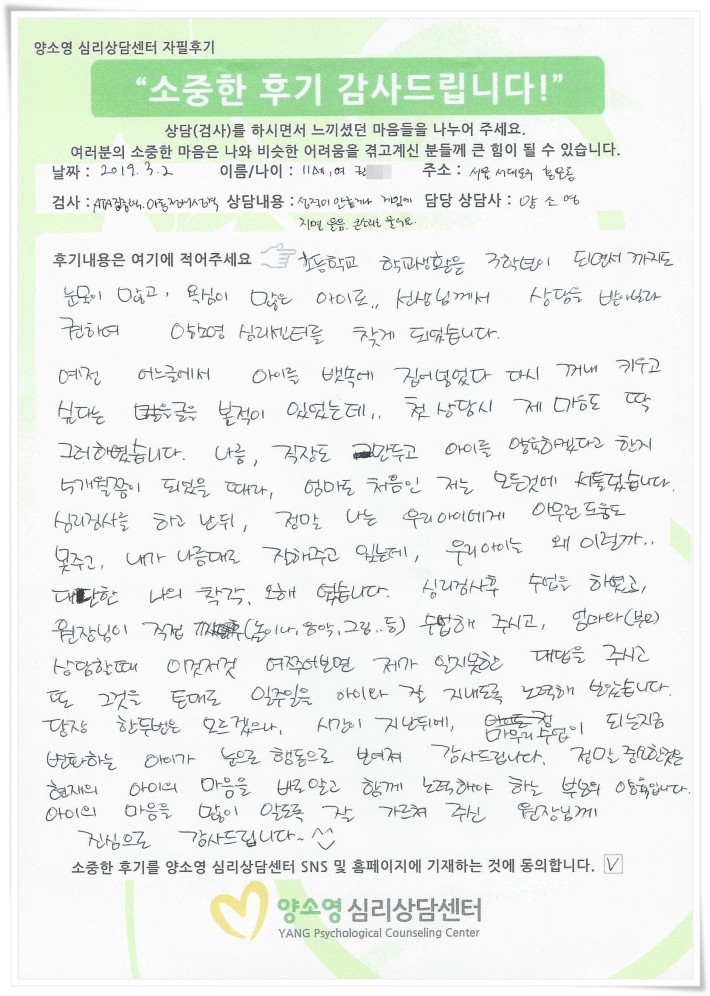 양소영 심리상담센터 자필후기
“소중한 후기 감사드립니다!”
상담(검사)를 하시면서 느끼셨던 마음들을 나누어 주세요.
여러분의 소중한 마음은 나와 비슷한 어려움을 겪고계신 분들께 큰 힘이 될 수 있습니다.
날짜 : 2019. 3. 2 이름/나이 : 11세, 여 주소 : 서울 서대문구 홍은동
검사 : 상담내용 : 담당 상담사 : 양소영
지면 울음.
후기내용은 여기에 적어주세요 초등학교 학교생활을 3학년이 되면서 까지도
눈물이 많고, 욕심이 많은 아이로.. 선생님께서 상담을 받아보라
권하여 양소영 심리센터를 찾게 되었습니다.
예전 어느글에서 아이를 뱃속에 집어넣었다 다시 꺼내 키우고
싶다는 글을 본적이 있었는데.. 첫 상담시 제 마음도 딱
그러하였습니다. 나름, 직장도 그만두고 아이를 양육하겠다고 한지
5개월쯤이 되었을 때라, 엄마도 처음인 저는 모든것에 서툴렀습니다.
심리검사를 하고 난뒤, 정말 나는 우리아이에게 아무런 도움도
못주고, 내가 나름대로 잘해주고 있는데, 우리아이는 왜 이럴까..
대단한 나의 착각, 오해 였습니다. 심리검사후 수업을 하였고,
원장님이 직접 (놀이나, 음악, 그림.. 등) 수업해 주시고, 엄마와(부모)
상담할때 이것저것 여쭈어보면 제가 알지못한 대답을 주시고
또 그것을 토대로 일주일을 아이와 잘 지내도록 노력해 보았습니다.
당장 한두번은 모르겠으나, 시간이 지난뒤에, 마음의 수업이 되는지금
변화하는 아이가 눈으로 행동으로 보여져 감사드립니다. 정말 중요한것은
현재의 아이의 마음을 바로알고 함께 노력해야 하는 부모의 양육입니다.
아이의 마음을 많이 알도록 잘 가르쳐 주신 원장님께
진심으로 감사드립니다~
소중한 후기를 양소영 심리상담센터 SNS 및 홈페이지에 기재하는 것에 동의합니다. V
양소영 심리상담센터
YANG Psychological Counseling Center